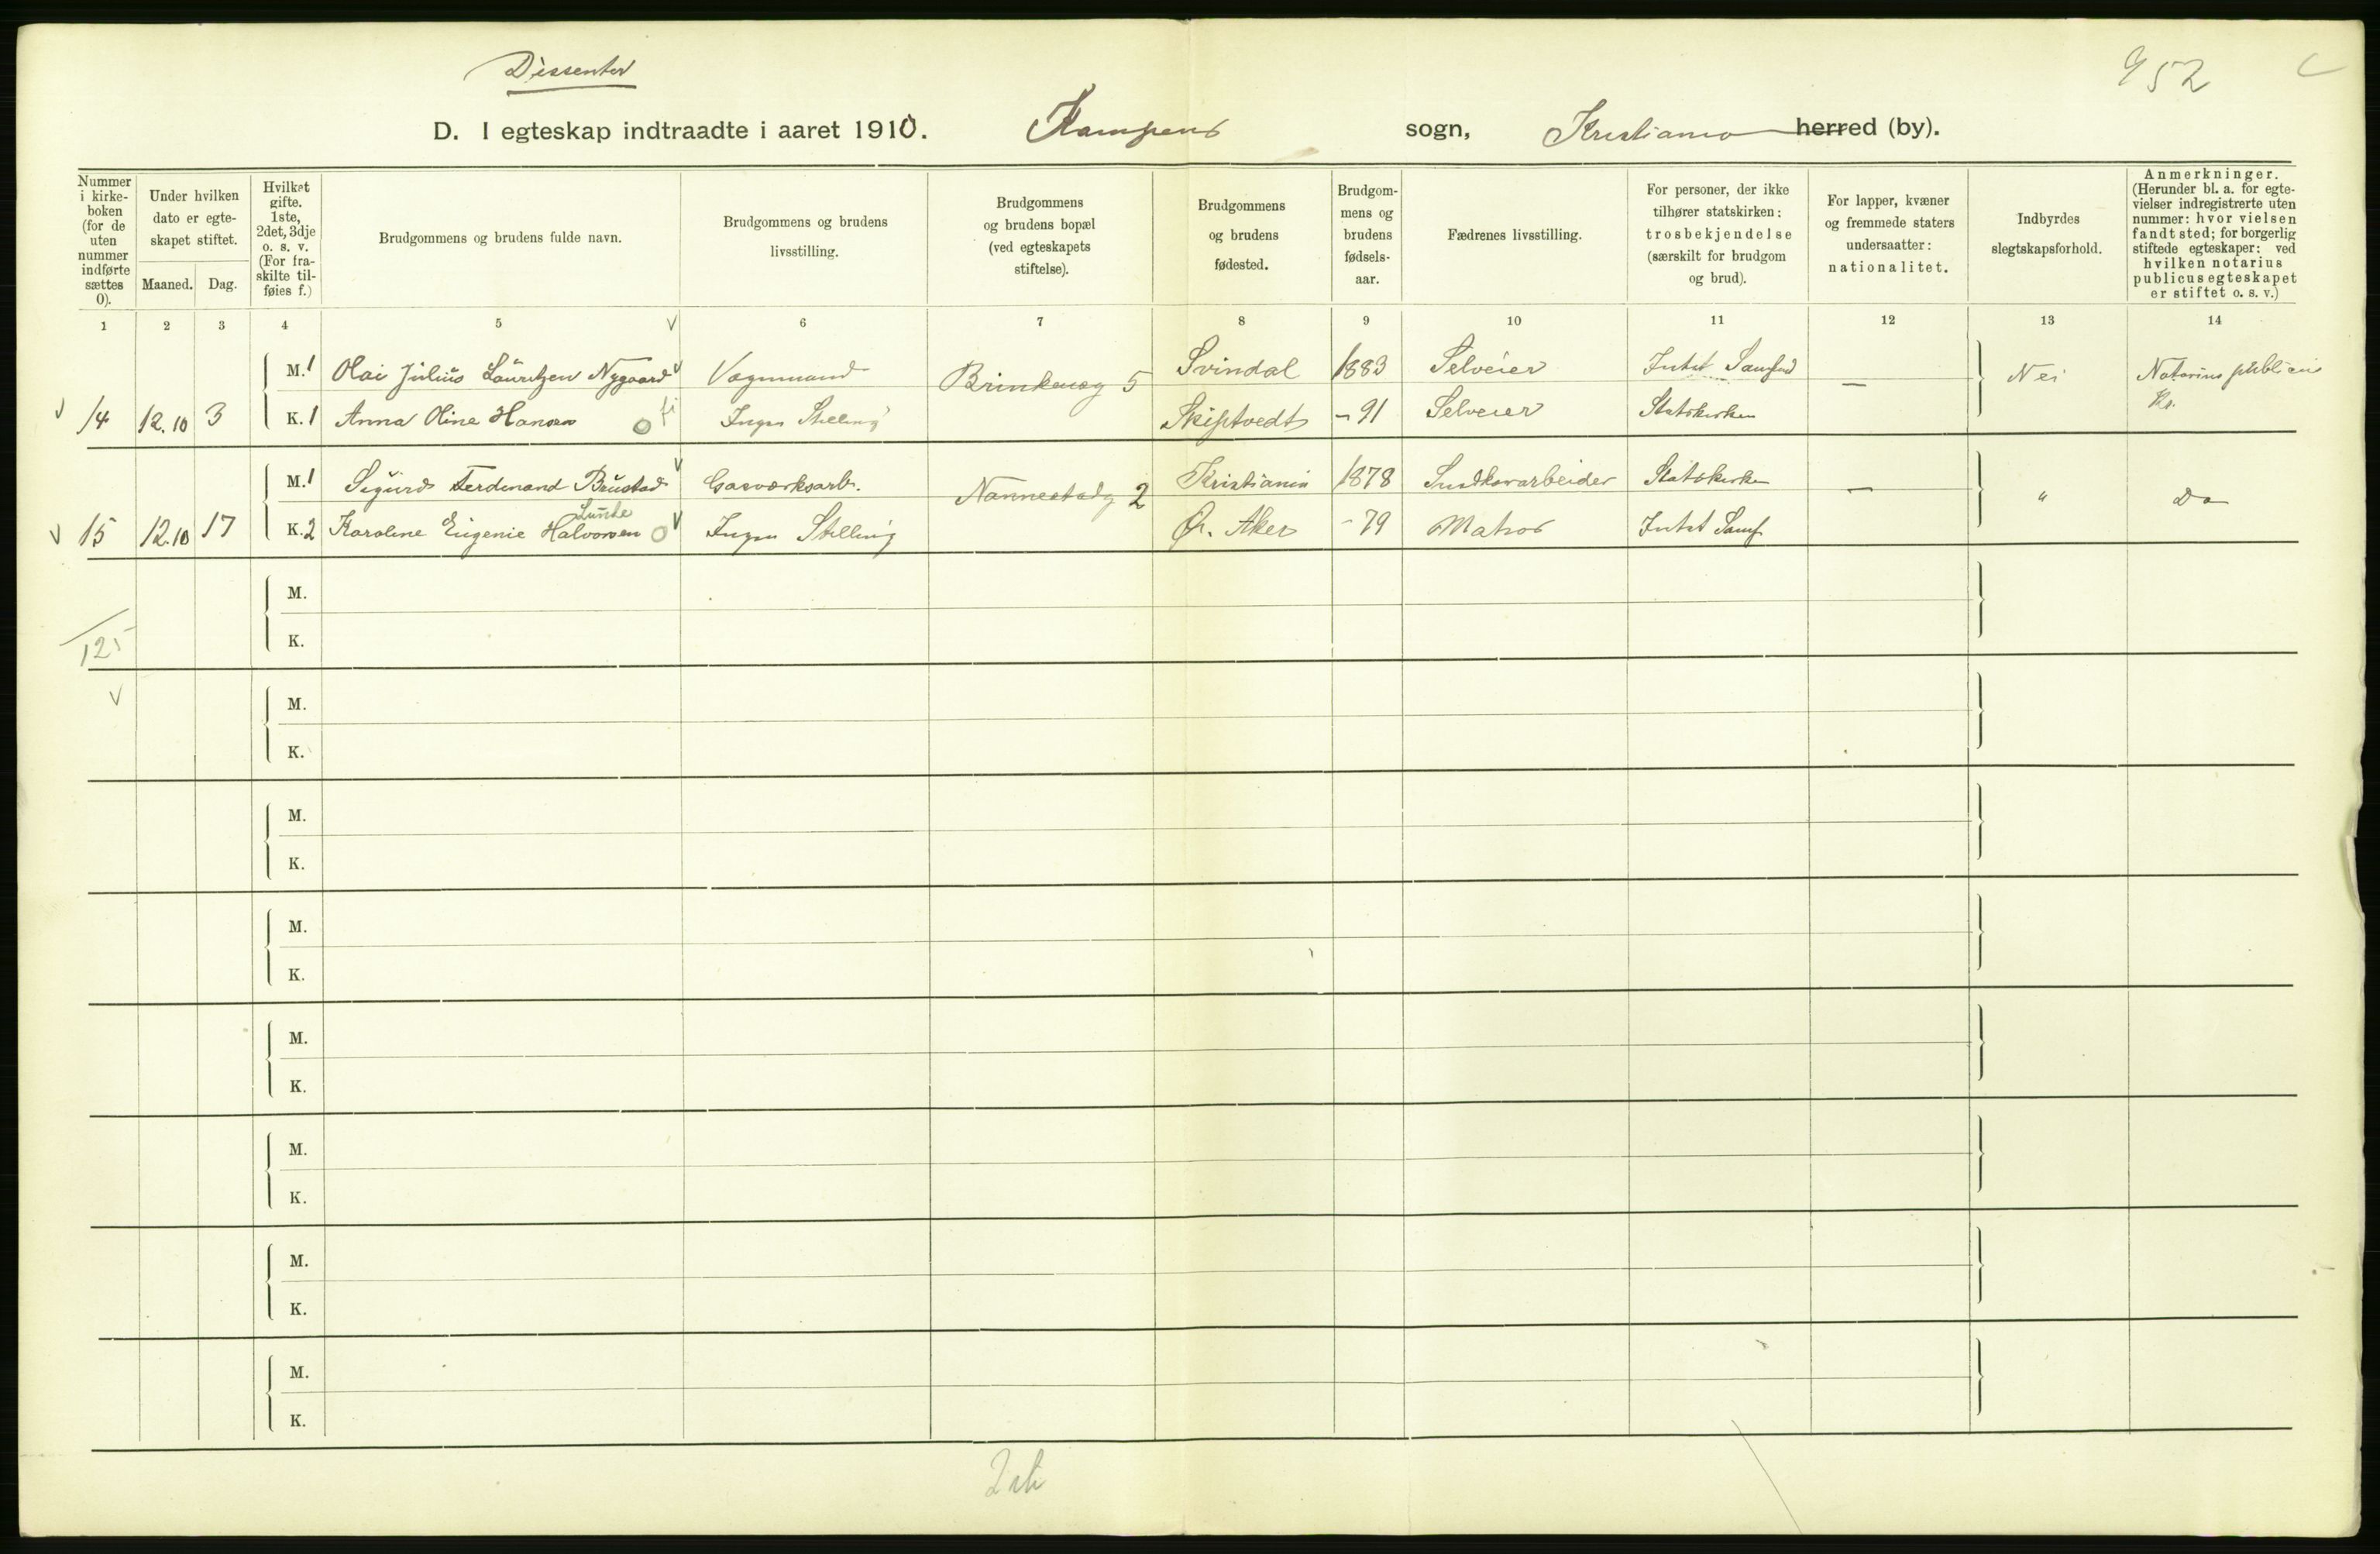 Dissenter
952
D. I egteskap indtraadte i aaret 1910. Kampens sogn, Kristiania herred (by).
Nummer i kirke-boken (for de uten nummer indførte sættes 0).
Under hvilken dato er egte-skapet stiftet.
Maaned. Dag.
Hvilket gifte. 1ste, 2det, 3dje o. s. v. (For fra-skilte til-føies f.)
Brudgommens og brudens fulde navn.
Brudgommens og brudens livsstilling.
Brudgommens og brudens bopæl (ved egteskapets stiftelse).
Brudgommens og brudens fødested.
Brudgom-mens og brudens fødsels-aar.
Fædrenes livsstilling.
For personer, der ikke tilhører statskirken: trosbekjendelse (særskilt for brudgom og brud).
For lapper, kvæner og fremmede staters undersaatter: nationalitet.
Indbyrdes slegtskapsforhold.
Anmerkninger. (Herunder bl. a. for egte-vielser indregistrerte uten nummer: hvor vielsen fandt sted; for borgerlig stiftede egteskaper: ved hvilken notarius publicus egteskapet er stiftet o. s. v.)
1 2 3 4 5 6 7 8 9 10 11 12 13 14
M. 1 Olai Julius Lauritzen Nygaard Vognmand Brinkenvg 5 Svindal 1883 Selveier Intet Samfud — Nei Notarius publicus
14 12.10 3 K. 1 Anna Oline Hansen Ingen Stilling Skiptvedt - 91 Selveier Statskirken Kr.
M. 1 Sigurd Ferdinand Brustad Gasværksarb. Nannestadg 2 Kristiania 1878 Statskirken — " Do
Lunde
15 12.10 17 K. 2 Karoline Eugenie Halvorsen Ingen Stilling Ør. Aker - 79 Matros Intet Samf
M.
K.
125
M.
K.
M.
K.
M.
K.
M.
K.
M.
K.
M.
K.
M.
K.